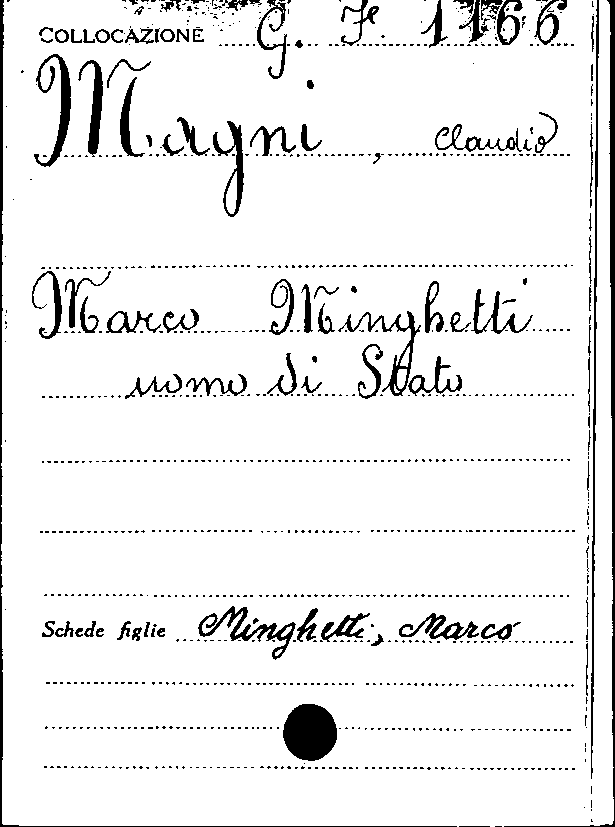 COLLOCAZIONE G. F. 1166
Magni, Claudio
Marco Minghetti
uomo di Stato
Schede figlie Minghetti, Marco